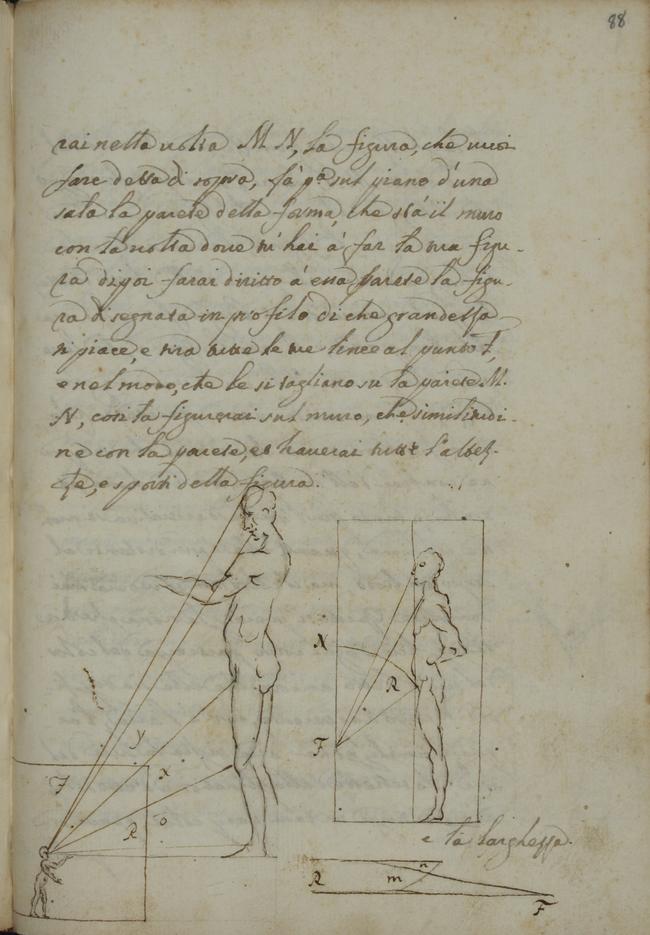 88
rai nella uolta M N, la figura, che uuoi
fare detta di sopra, fá pª sul piano d'una
sala la parete della forma, che stá il muro
con la uolta doue ui hai á far la tua figu-
ra di poi farai diritto á essa parete la figu-
ra disegnata in profilo di che grandezza
ti piace, e tira tutte le tue linee al punto F,
e nel modo, che le si tagliano su la parete M.
N, cosi la figurerai sul muro, che similitudi-
ne con la parete, et hauerai tutte l'altez-
ze, e sporti della figura.
N
R
F
y
x
F
R o
e la larghezza.
R m n
F